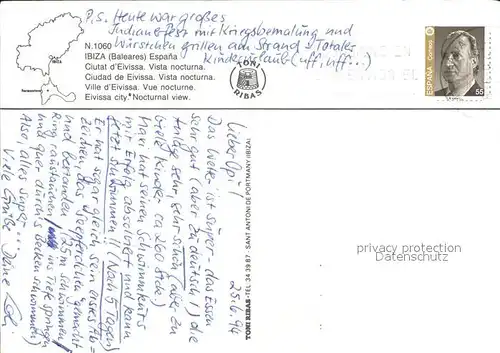 P.S. Heute war großes
Indianerfest mit Kriegsbemalung und
Würstchen grillen am Strand! Totaler
Kinderurlaub (uff, uff...)
N.1060
IBIZA (Baleares) España
Ciutat d'Eivissa. Vista nocturna.
Ciudad de Eivissa. Vista nocturna.
Ville d'Eivissa. Vue nocturne.
Eivissa city. Nocturnal view.
TONI
RIBAS
ESPAÑA
Correos
55
Lieber Opi!
Das Wetter ist super - das Essen
sehr gut (aber zu deutsch!) die
Anlage sehr, sehr schön (aber zu
viele Kinder ca 260 Stck.)
Maxi hat seinen Schwimmkurs
mit Erfolg absolviert und kann
jetzt schwimmen!! (Nach 5 Tagen)
Er hat sogar gleich sein erstes Ab-
zeichen, das Seepferdchen gemacht
und bestanden (25m schwimmen,
Ring raustauchen, ins Tiefe springen
und quer durch's Becken schwimmen)
Also, alles super...
Viele Grüße Deine
25.6.94
TONI RIBAS - TEL: 34 39 87 - SANT ANTONI DE PORTMANY (IBIZA)
philarts.com
Datenschutz
philarts.com